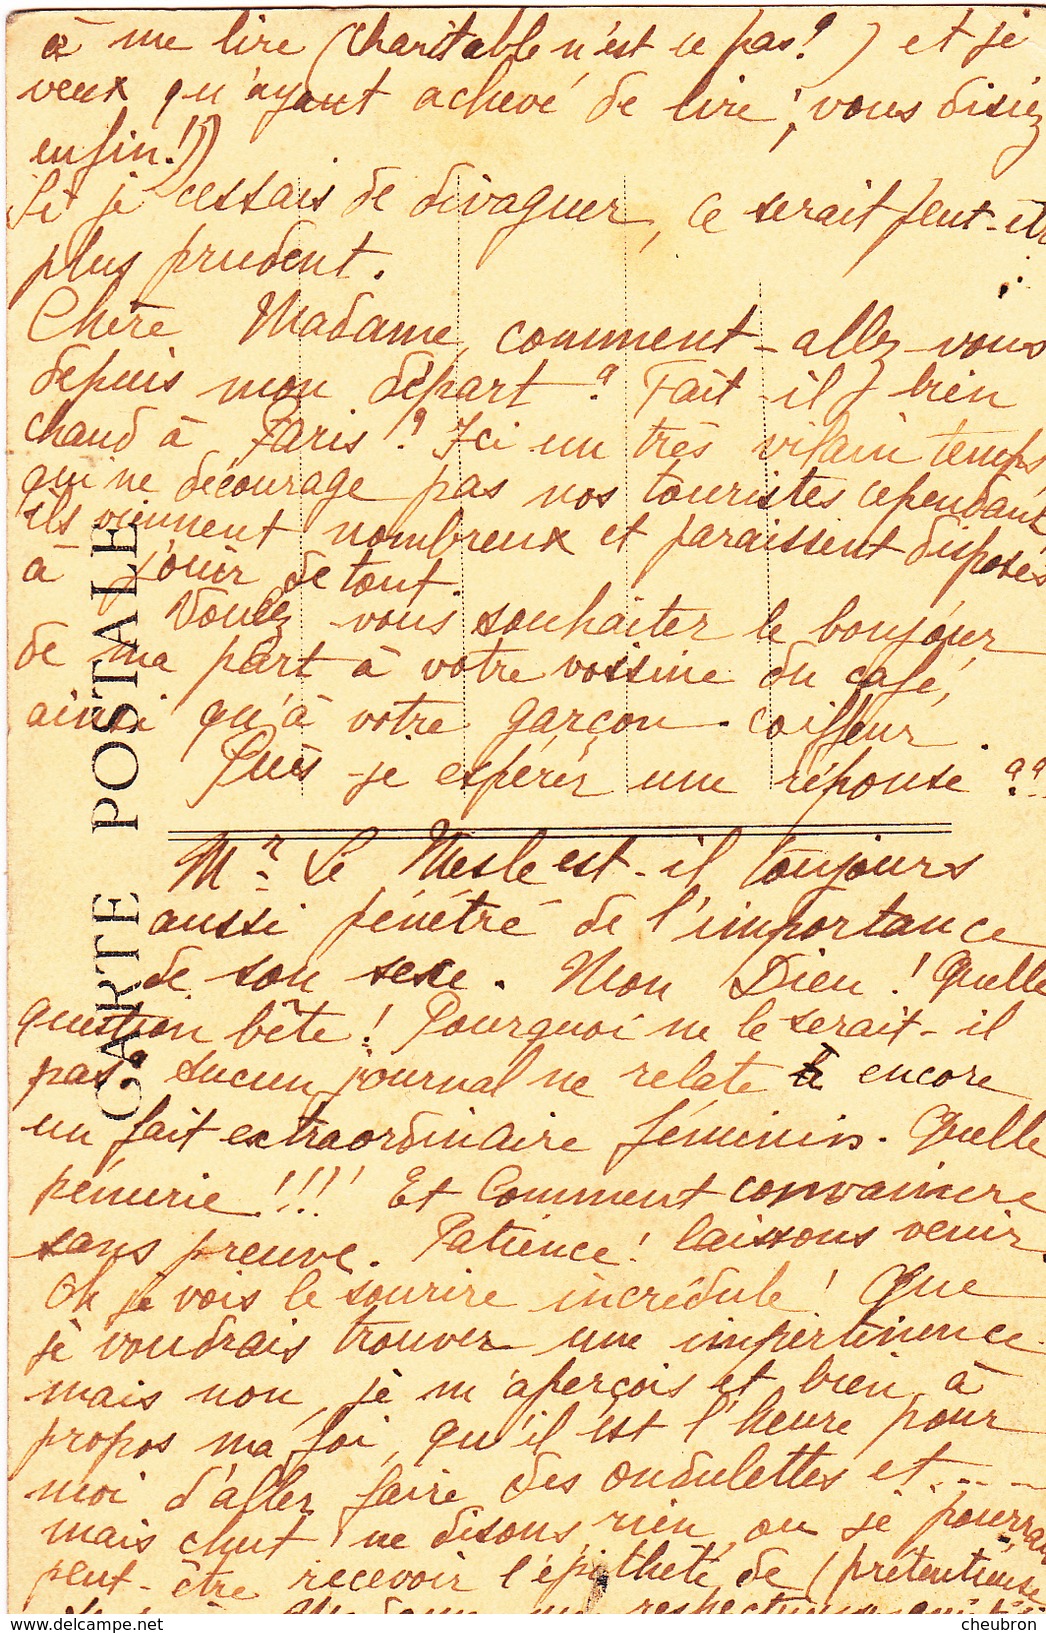 à me lire (charitable n'est ce pas? ) et je
veux qu'ayant achevé de lire, vous disiez
enfin!))
Si je cessais de divaguer, ce serait peut-être
plus prudent.
Chère Madame, comment-allez-vous
depuis mon départ? Fait-il bien
chaud à Paris? Ici un très vilain temps
qui ne décourage pas nos touristes cependant
ils viennent nombreux et paraissent disposés
à jouir de tout.
Voulez-vous souhaiter le bonjour
de ma part à votre voisine du café,
ainsi qu'à votre garçon-coiffeur.
Puis-je espérer une réponse??
CARTE POSTALE
Mr Le Mesle est-il toujours
aussi pénétré de l'importance
de son sexe. Mon Dieu! Quelle
question bête! Pourquoi ne le serait-il
pas? Aucun journal ne relate encore
un fait extraordinaire féminin. Quelle
pénurie!!!! Et Comment convaincre
sans preuve. Patience! laissons venir.
Oh je vois le sourire incrédule! Que
je voudrais trouver une impertinence
mais non, je m'aperçois et bien à
propos ma foi, qu'il est l'heure pour
moi d'aller faire des ondulettes et....
mais chut! ne disons rien, ou je pourrai
peut-être recevoir l'épithète de (prétentieuse
Madame
www.delcampe.net
cheubron